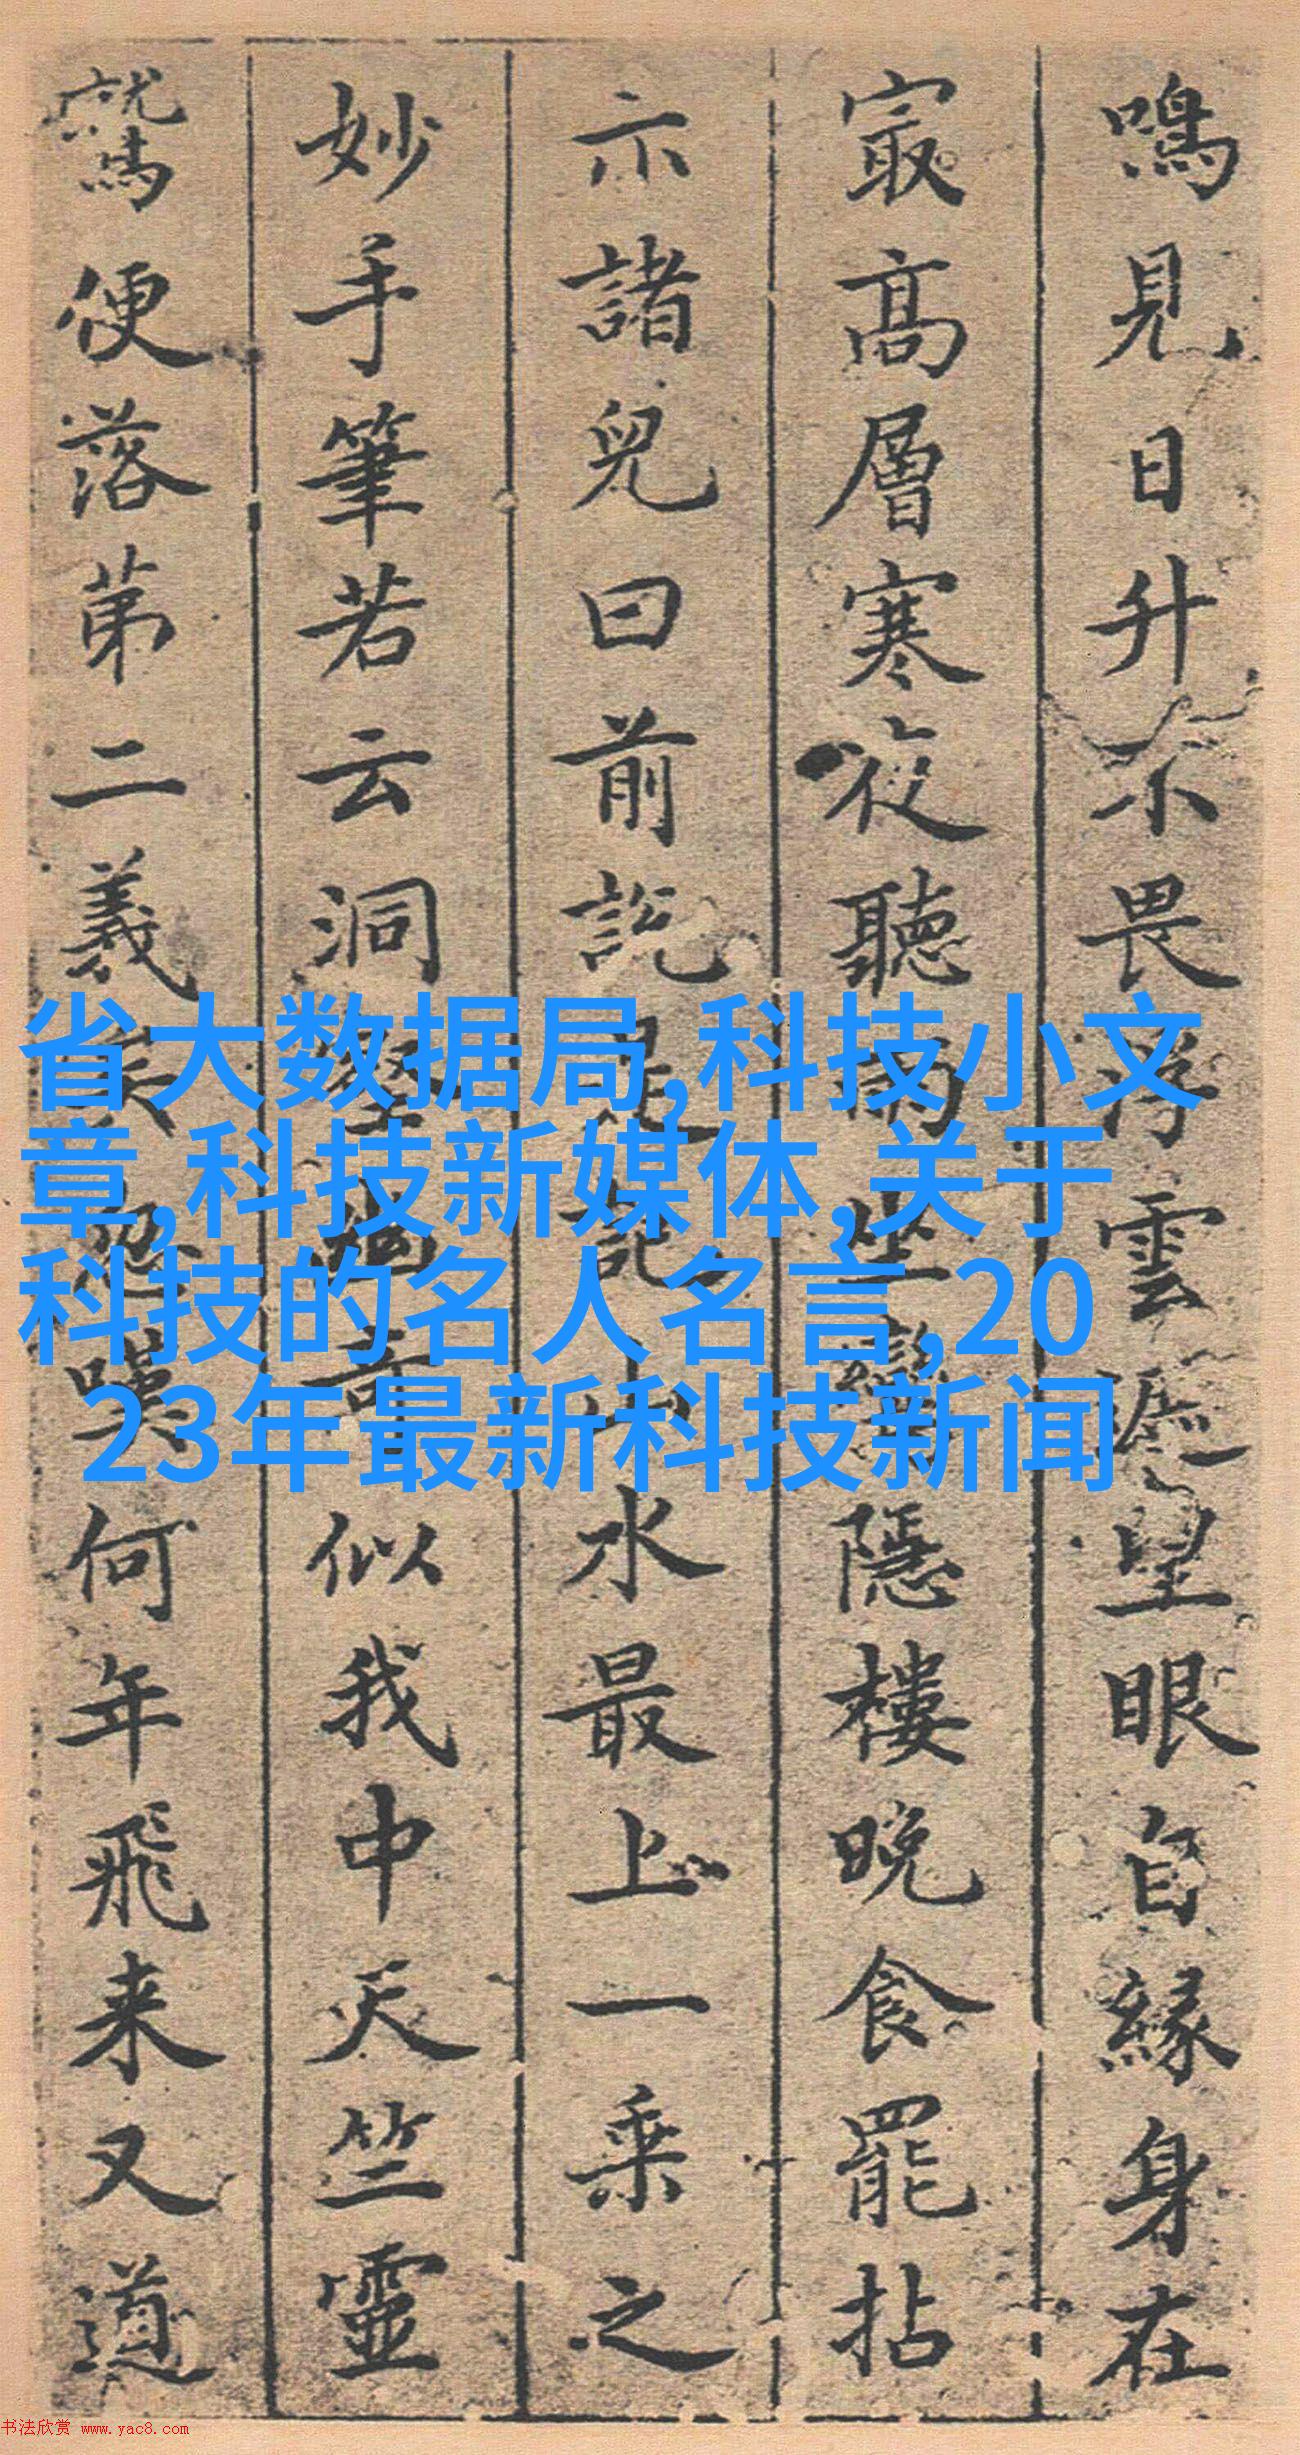 鳴見日升不畏浮雲遮望眼自緣身在
最高層寒夜聽雨坐巒隱樓晚食罷拈
示諸兒曰前說是說山水最上一乘之
妙手筆若云洞壑幽奇似我中天竺靈
鷲便落第二義矣忽嘆何年飛来又道
省大数据局,科技小文
章,科技新媒体,关于
科技的名人名言,20
23年最新科技新闻
书法欣赏 www.yac8.com